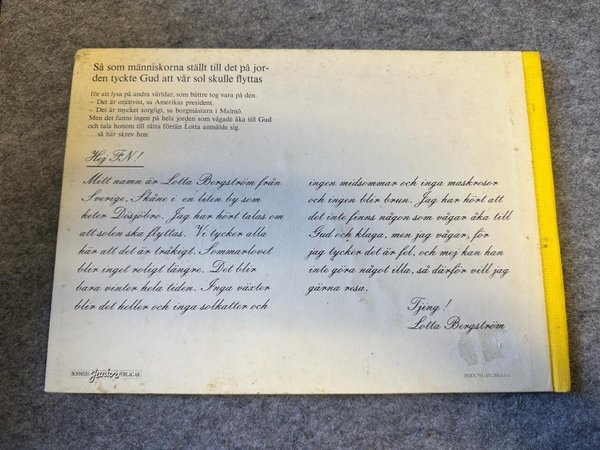 Så som människorna ställt till det på jor-
den tyckte Gud att vår sol skulle flyttas
för att lysa på andra världar, som bättre tog vara på den.
– Det är orättvist, sa Amerikas president.
– Det är mycket sorgligt, sa borgmästarn i Malmö.
Men det fanns ingen på hela jorden som vågade åka till Gud
och tala honom till rätta förrän Lotta anmälde sig.
. . . så här skrev hon
Hej FN!
Mitt namn är Lotta Bergström från
Sverige. Skåne i en liten by som
heter Dösjöbro. Jag har hört talas om
att solen ska flyttas. Vi tycker alla
här att det är tråkigt. Sommarlovet
blir inget roligt längre. Det blir
bara vinter hela tiden. Inga växter
blir det heller och inga solkatter och
ingen midsommar och inga maskrosor
och ingen blir brun. Jag har hört att
det inte finns någon som vågar åka till
Gud och klaga, men jag vågar, för
jag tycker det är fel, och mej kan han
inte göra något illa, så därför vill jag
gärna resa.
Tjing!
Lotta Bergström
BONNIERS Junior FÖRLAG AB
ISBN